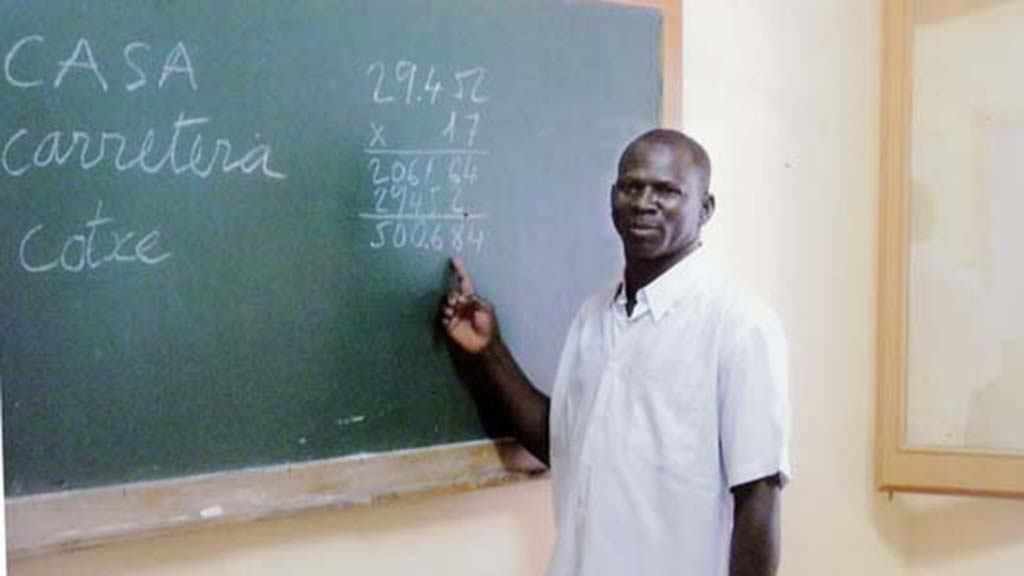 CASA
carretera
cotxe
29.452
x 17
206164
29452
500.684